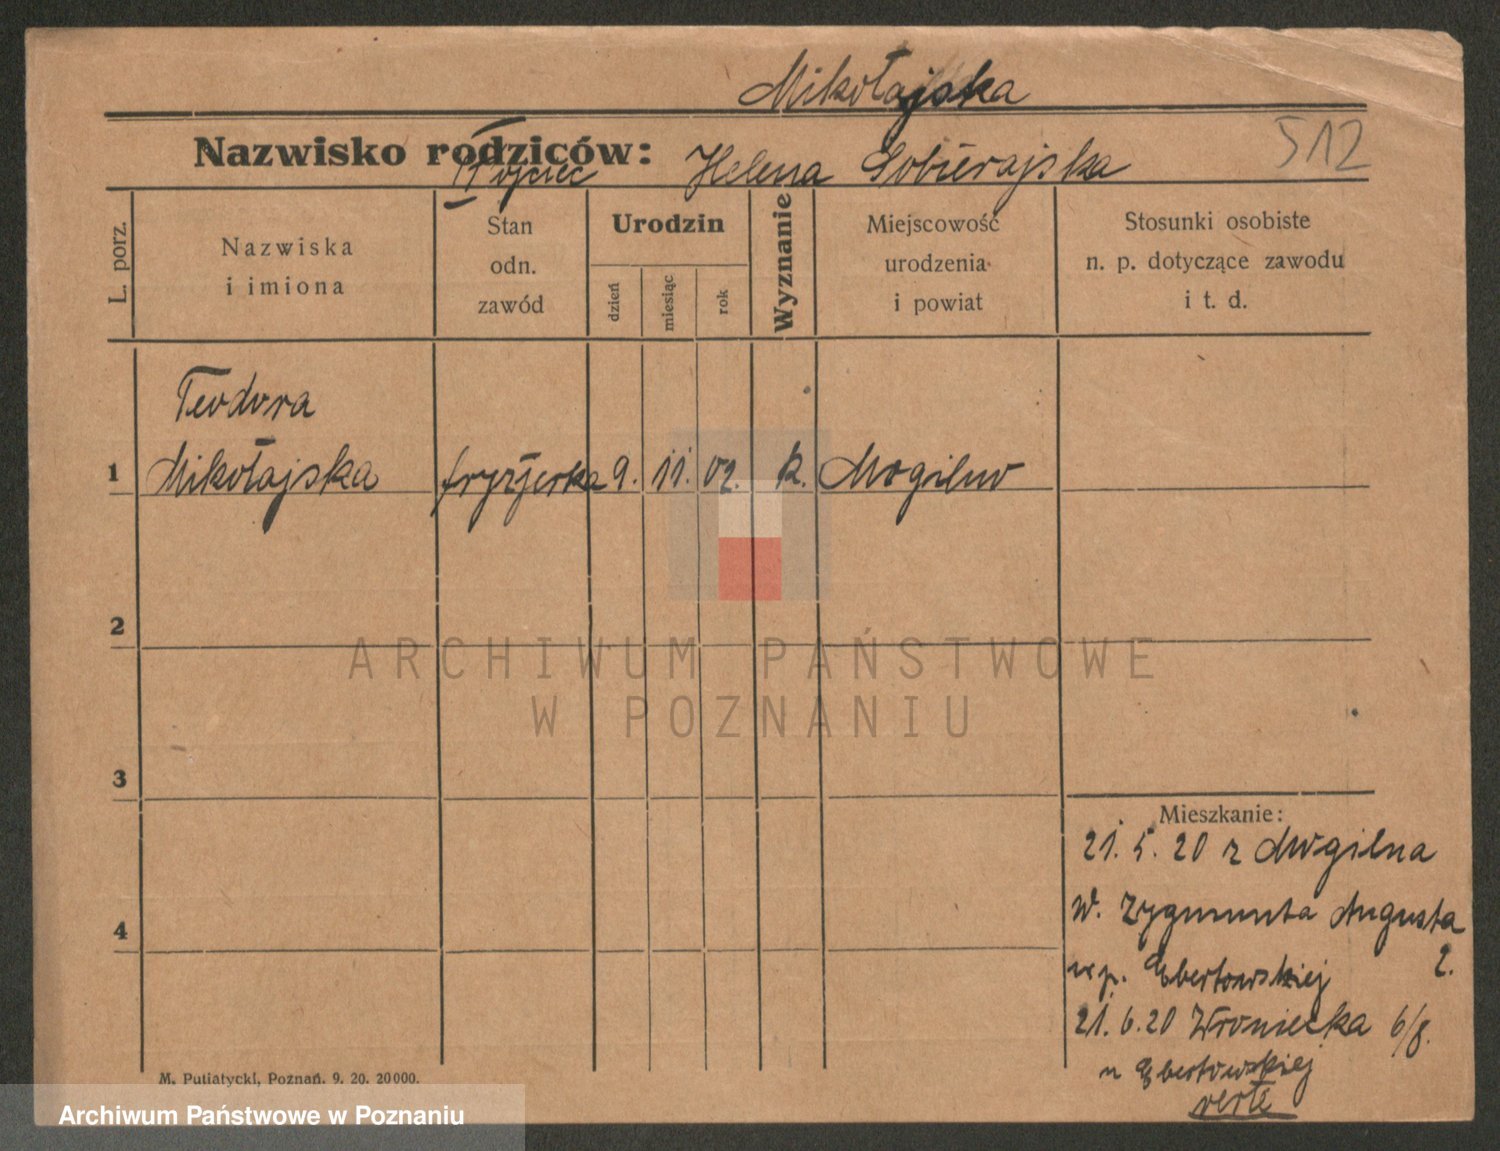 Mikołajska
Nazwisko rodziców:
Helena Sobierajska
512
L. porz.
Nazwiska
i imiona
Stan
odn.
zawód
Urodzin
dzień
miesiąc
rok
Wyznanie
Miejscowość
urodzenia
i powiat
Stosunki osobiste
n. p. dotyczące zawodu
i t. d.
Teodora
1 Mikołajska fryzjerka 9. 11. 02. k. Mogilno
2
ARCHIWUM PAŃSTWOWE
W POZNANIU
3
4
Mieszkanie:
21. 5. 20 z Mogilna
w. Zygmunta Augusta
2.
u p. Ebertowskiej
21. 6. 20 Wroniecka 6/8.
u Ebertowskiej
verte
M. Putiatycki, Poznań. 9. 20. 20000.
Archiwum Państwowe w Poznaniu